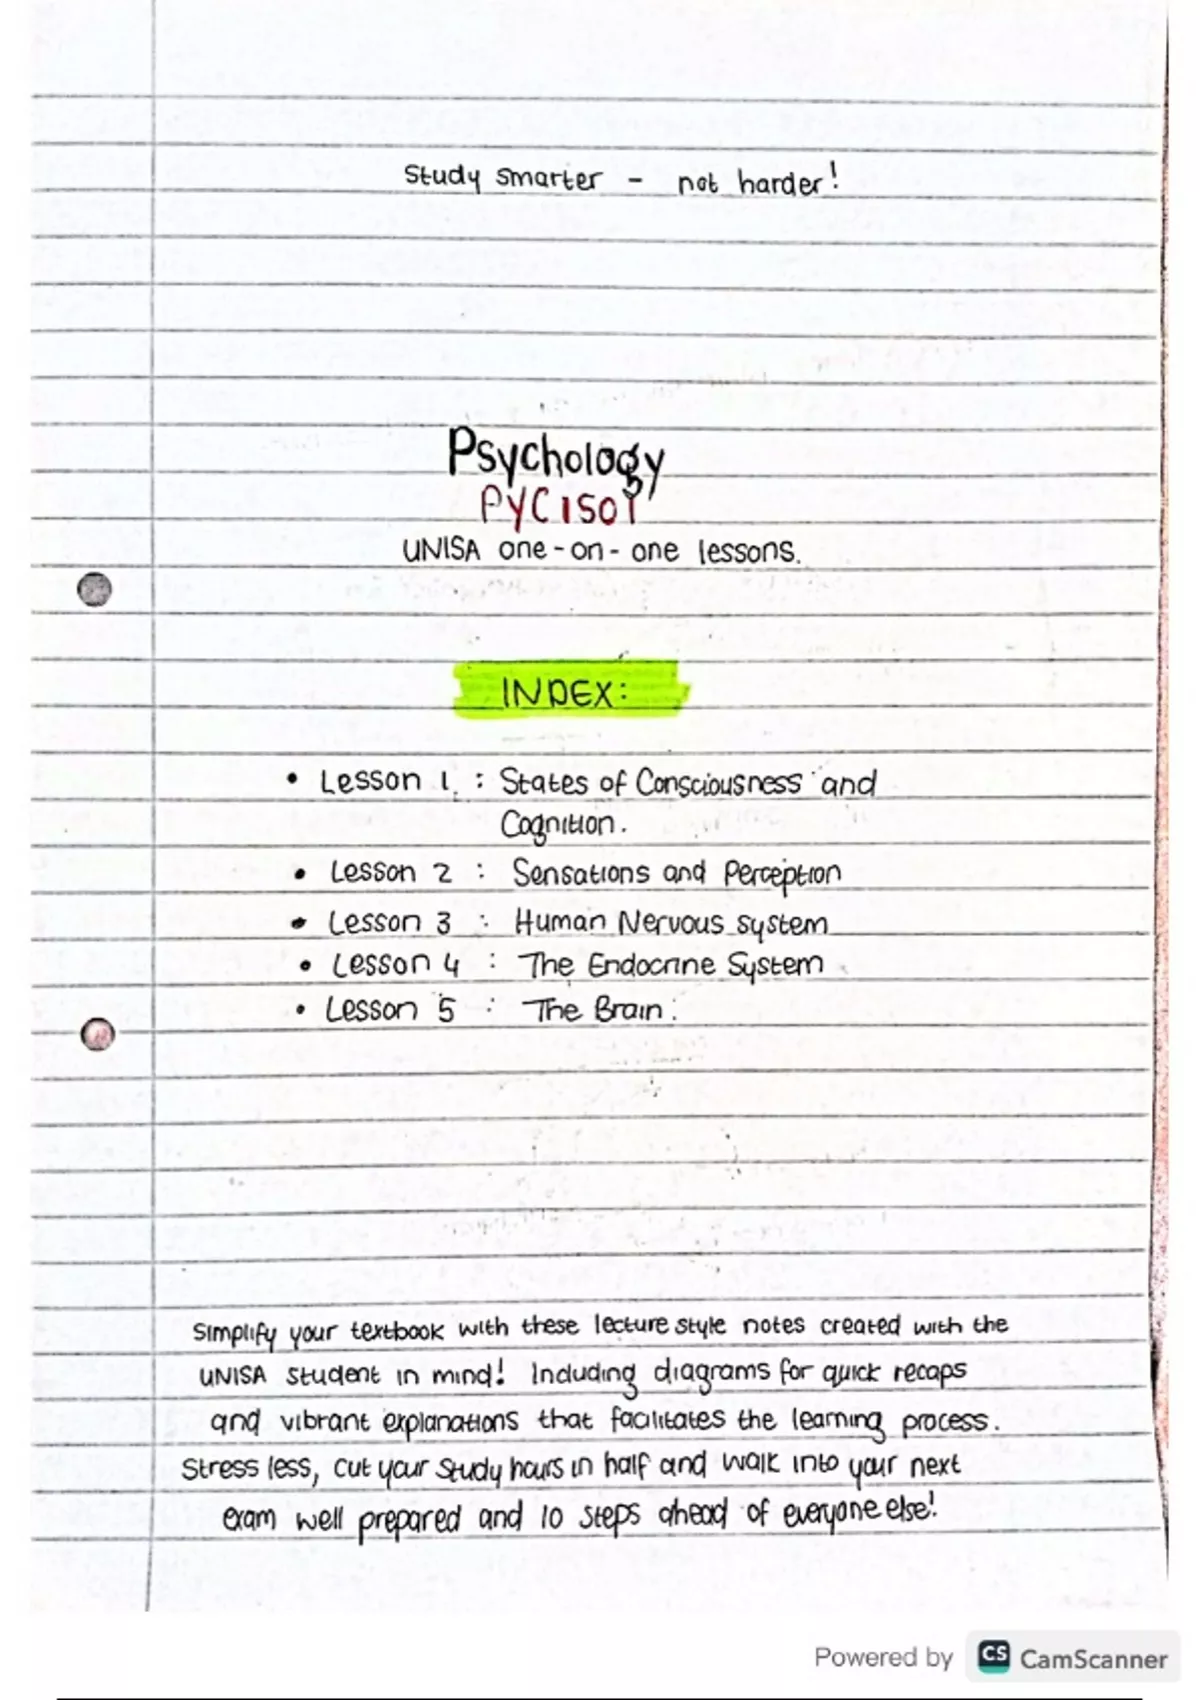 Study smarter - not harder!
Psychology
PYC1501
UNISA one-on-one lessons.
INDEX:
• Lesson 1. : States of Consciousness and
Cognition.
• Lesson 2 : Sensations and Perception
• Lesson 3 : Human Nervous system
• Lesson 4 : The Endocrine System
• Lesson 5 : The Brain.
Simplify your textbook with these lecture style notes created with the
UNISA student in mind! Including diagrams for quick recaps
and vibrant explanations that facilitates the learning process.
Stress less, cut your study hours in half and walk into your next
exam well prepared and 10 steps ahead of everyone else!
Powered by CS CamScanner